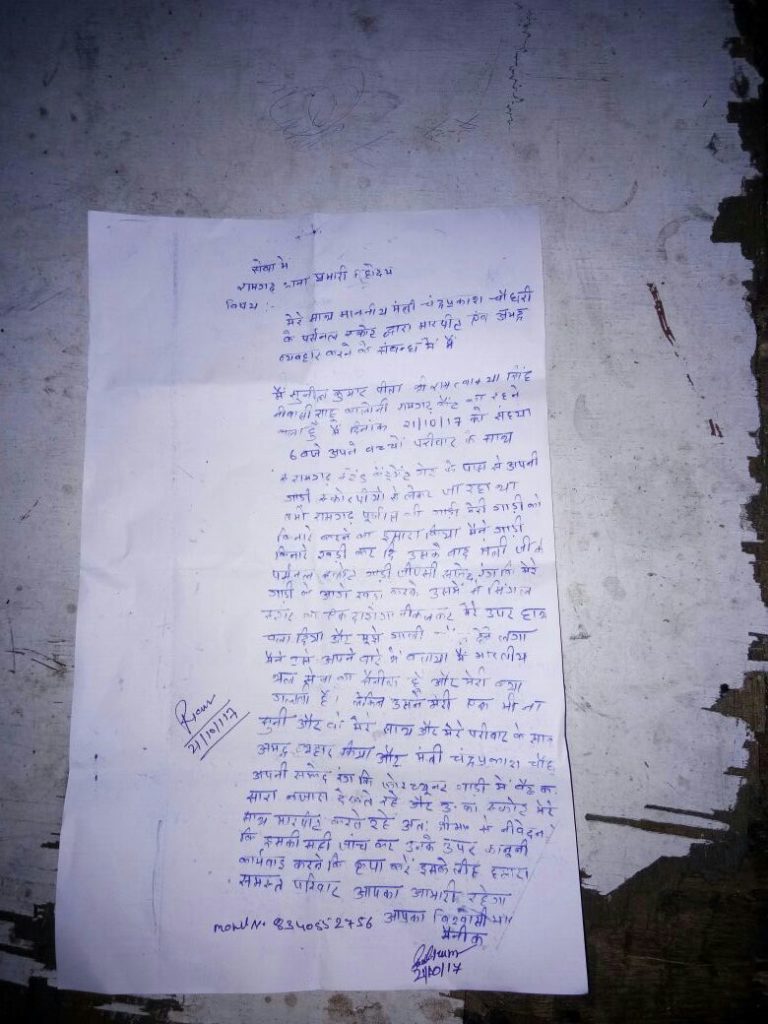 सेवा मे
रामगढ़ थाना प्रभारी महोदय
विषय :-
मेरे साथ माननीय मंत्री चंद्रप्रकाश चौधरी
के पर्सनल स्कोट द्वारा मारपीट एवं अभद्र
व्यवहार करने के संबन्ध में
मैं सुनील कुमार पीता श्री सिंह
नीवासी साहू कालोनी रामगढ़ कैंट का रहने
वाला हूँ मैं दिनांक 21/10/17 को संध्या
6 बजे अपने बच्चों परीवार के साथ
रामगढ़ के पास से अपनी
गाडी स्कोरपीओ से लेकर जा रहा था
तभी रामगढ़ पुलीस की गाडी मेरी गाडी को
किनारे करने का इसारा किया मैंने गाडी
किनारे खडी कर दि उसके बाद मंत्री जी के
पर्सनल स्कोट गाडी रंग कि मेरे
गाडी के आगे खडा करके उसमें से सिंगल
स्टार का एक दारोगा नीकलकर मेरे उपर हाथ
चला दिया और मुझे गाली देने लगा
मैंने उसे अपने बारे में बताया मैं भारतीय
थल सेना का सैनीक हूँ और मेरी क्या
गलती है। लेकिन उसने मेरी एक भी ना
सुनी और मेरे साथ और मेरे परीवार के साथ
अभद्र व्यहार किया और मंत्री चंद्रप्रकाश चौध
अपनी सफेद रंग कि फोरच्यूनर गाडी में बैठ क
सारा नजारा देखते रहे और उनका स्कोट मेरे
साथ मारपीट करते रहे अतः श्रीमान से नीवेदन
कि इसकी सही जांच कर उनके उपर कानूनी
कार्यवाइ करने कि कृपा करें इसके लीए हमारा
समस्त परिवार आपका आभारी रहेगा
MOBILE No. 8340552756 आपका विश्वासी
सैनीक
21/10/17
21/10/17